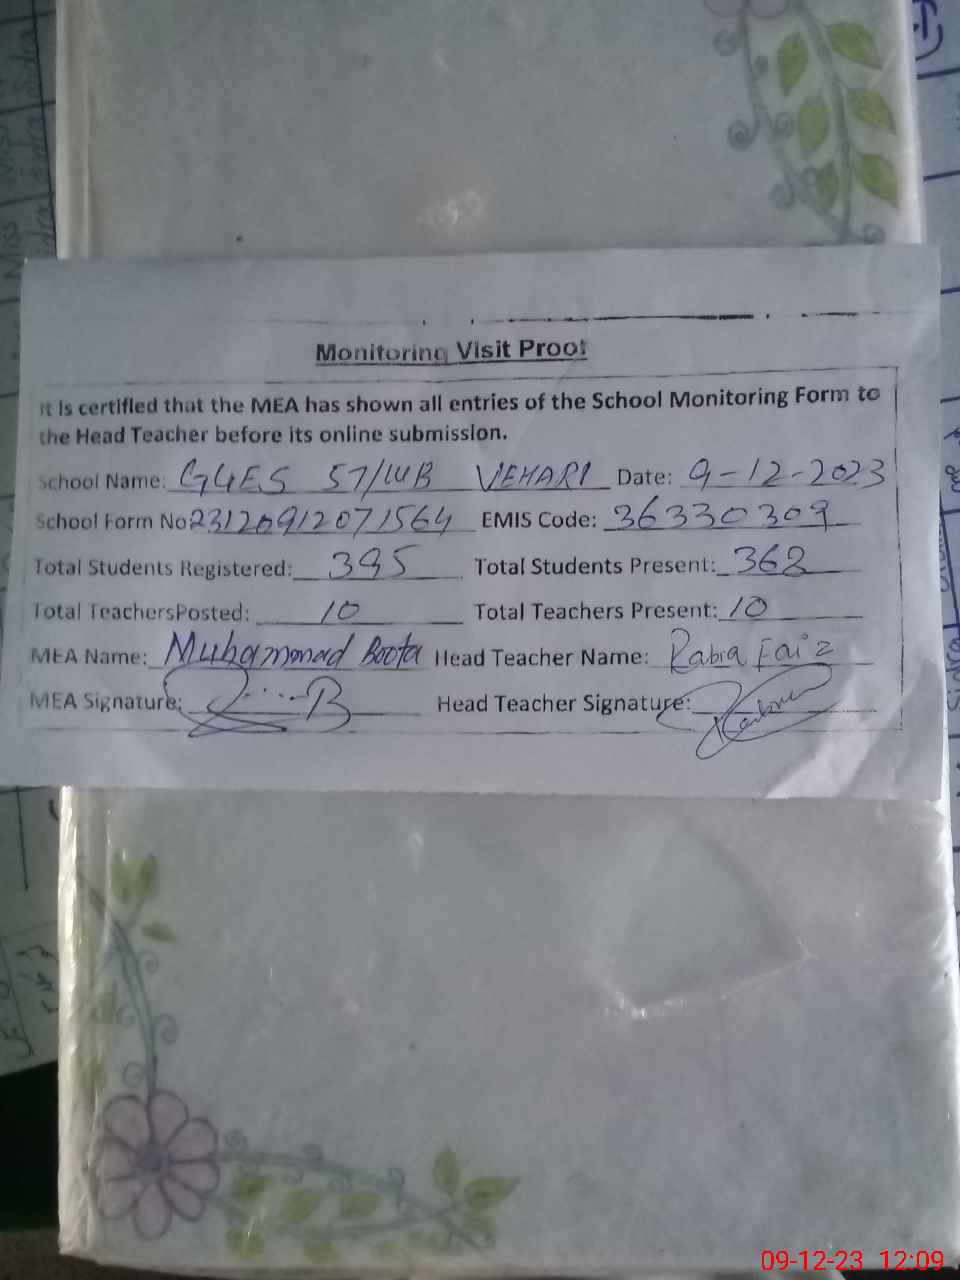 Monitoring Visit Proof
It is certified that the MEA has shown all entries of the School Monitoring Form to
the Head Teacher before its online submission.
School Name: GGES 57/WB VEHARI Date: 9-12-2023
School Form No 23120912071564 EMIS Code: 36330309
Total Students Registered: 395 Total Students Present: 362
Total TeachersPosted: 10 Total Teachers Present: 10
MEA Name: Muhammad Boota Head Teacher Name: Rabia Faiz
MEA Signature: Head Teacher Signature:
09-12-23 12:09